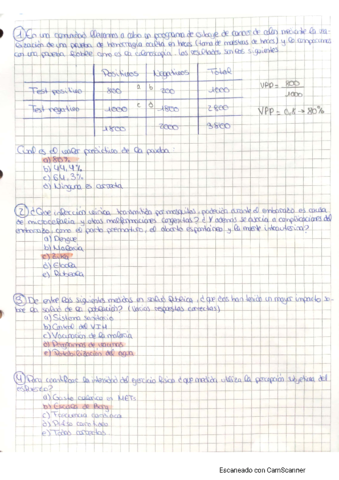 ① En una comunidad llevamos a cabo un programa de cribaje de cáncer de colon mediante la
realización de una prueba de hemorragia oculta en heces (toma de muestras de heces) y la comparamos
con una prueba fiable como es la colonoscopia. Los resultados son los siguientes:
Positivos Negativos Total
Test positivo 800 a b 1000
VPP = 800
1000
Test negativo 1000 c d 1800 2800
VPP = 0,8 → 80%
1800 2000 3800
Cual es el valor predictivo de la prueba
a) 80%
b) 44,4%
c) 64,3%
e) Ninguna es correcta
② ¿Qué infección vírica transmitida por mosquitos, padecida durante el embarazo es causa
de microcefalia y otras malformaciones congénitas? ¿Y además se asocia a complicaciones del
embarazo, como es parto prematuro, el aborto espontáneo y la muerte intrauterina?
a) Dengue
b) Malaria
c) Zika
d) Ébola
e) Rubeola
③ De entre las siguientes medidas en salud pública, ¿qué dos han tenido un mayor impacto so-
bre la salud de la población? (Varias respuestas correctas)
a) Sistema sanitario
b) Control del VIH
c) Vacunación de la malaria
d) Programas de vacunas
e) Potabilización del agua
④ Para cuantificar la intensidad del ejercicio físico ¿que medida utiliza la percepción subjetiva del
esfuerzo?
a) Gasto calórico en METs
b) Escala de Borg
c) Frecuencia cardiaca
d)
e) Todas correctas
Escaneado con CamScanner